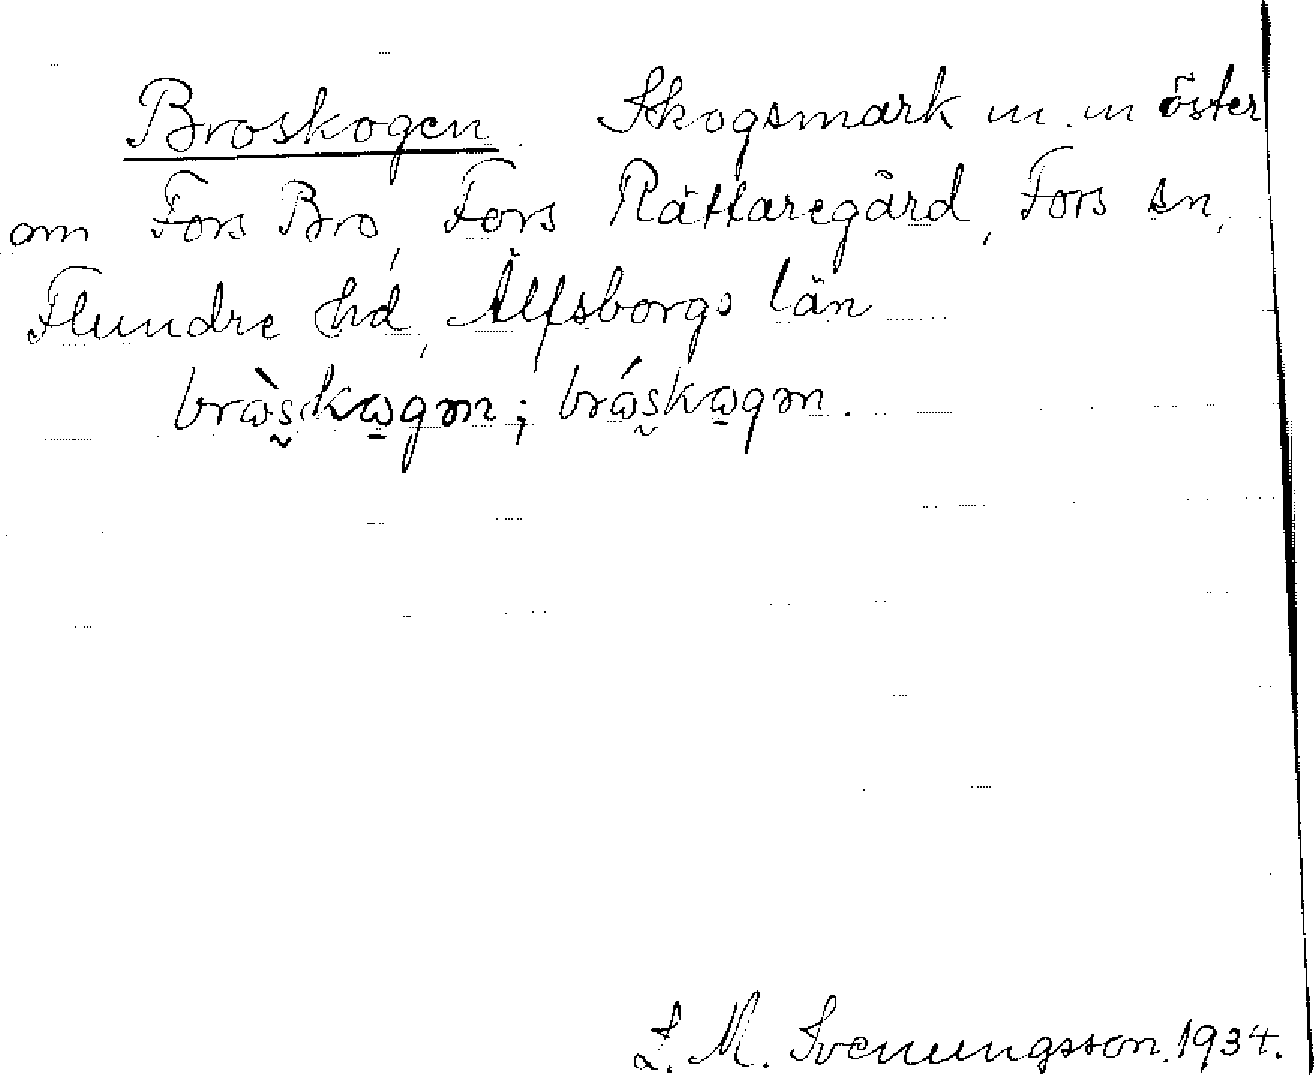 Broskogen. Skogsmark m.m öster
om Fors Bro, Fors Rättaregård, Fors sn,
Flundre hd, Älfsborgs län
L. M. Svenungsson. 1934.